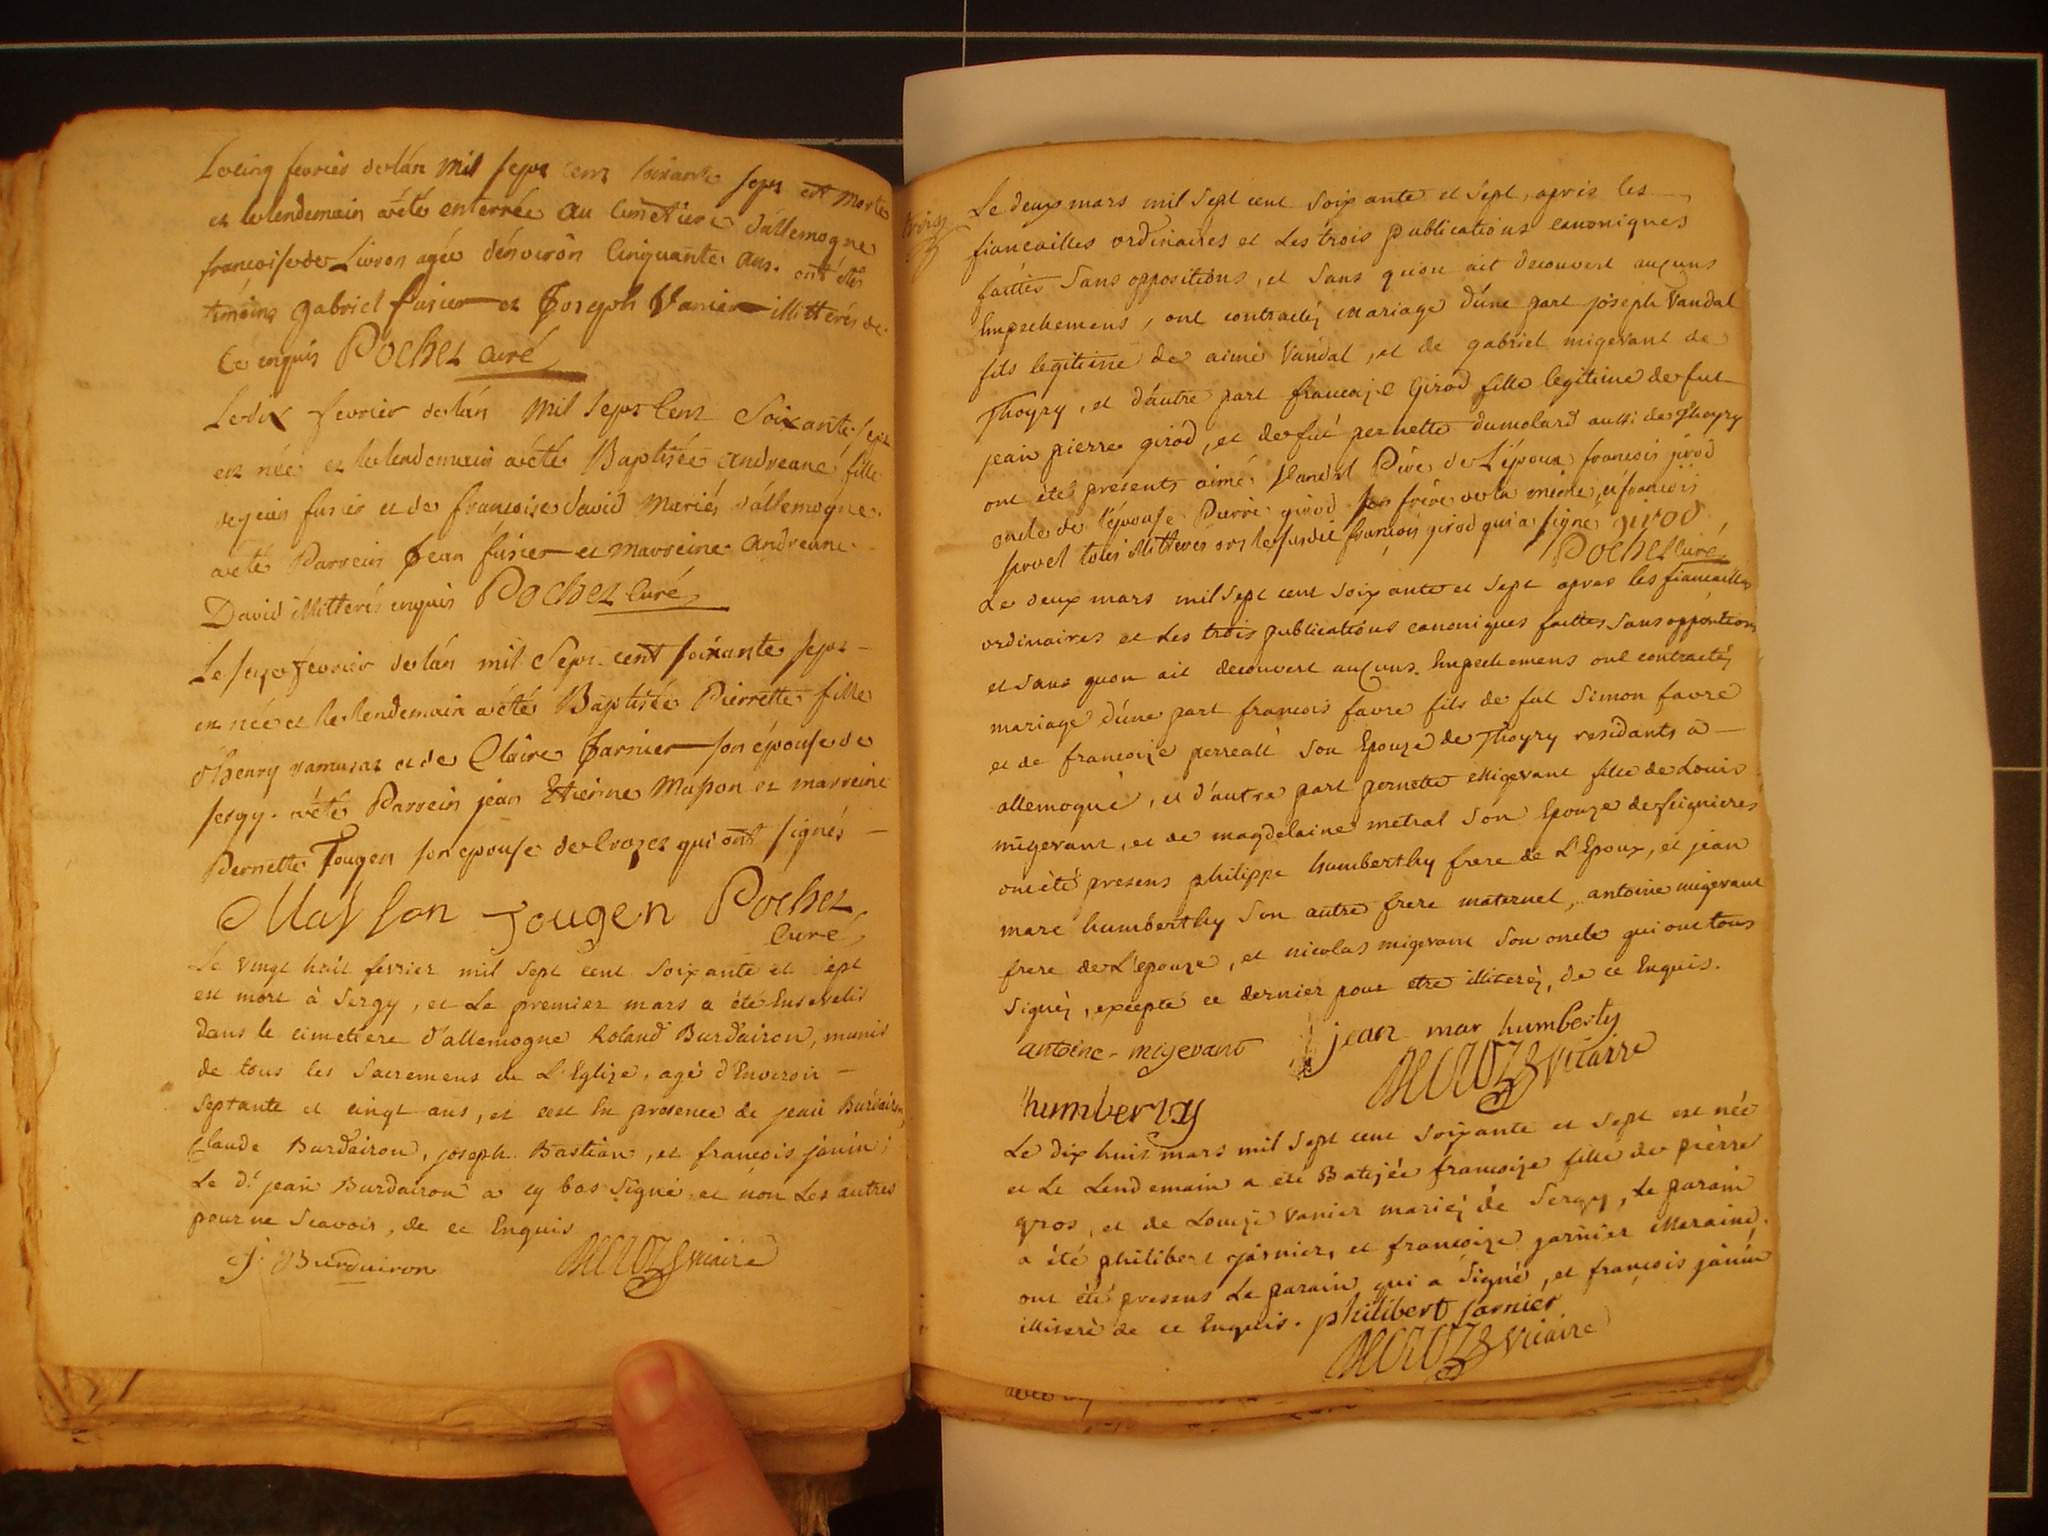 Le cinq fevrier de lán mil sept cent soixante sept est morte
et le lendemain a été enterrée au cimetiere d'allemogne
francoise de Livron agée d'énviron Cinquante ans. ont étés
témoins gabriel fusier et Joseph Vanier illittérés de
Ce enquis Pochet curé
Le dix fevrier de lán mil sept Cent Soixante sept
est née et le lendemain a été Baptisée andreane fille
de jean fusier et de francoise david Mariés d'allemogne.
a été Parrein Jean fusier et marreine andreane
David illittérés enquis Pochet Curé
Le seize fevrier de lán mil Sept cent soixante sept
est née et le lendemain a été Baptisée Pierrette fille
d'henry ramusat et de Claire Garnier son épouse de
sergy. a été Parrein jean Etienne Masson et marreine
Pernette Tougen son epouse de Crozet qui ont signés
Masson Tougen Pochet
Curé
Le vingt huit fevrier mil sept cent soixante et sept
est mort à Sergy, et Le premier mars a été Ensevelis
dans le cimetiere d'allemogne Roland Burdairon, munis
de tous les Sacremens de L'Eglize, agé d'Environ
septante et cinqt ans, et cest En presence de jean Burdairon,
Claude Burdairon, joseph Bastian, et francois janin;
Le dt jean Burdairon a cy bas signé et non Les autres
pour ne Scavoir, de ce Enquis
J. Burdairon Decroze vicaire
Le deux mars mil sept cent soixante et sept, apris les
fiancailles ordinaires et Les trois publications canoniques
faittes Sans oppositions, et Sans qu'on ait decouvert aucuns
Empechemens, ont contractés Mariage d'une part joseph Vandal
fils legitime de aimé Vandal, et de gabriel migevant de
Thoyry, et d'autre part francoize Girod fille legitime de fut
jean pierre girod, et de fut pernette dumolard aussi de Thoyry
ont été presents aimé Vandal Pere de L'époux francois girod
oncle de l'épouse Pierre girod son frére de la même, et francois
tous illitterés ors le susdit françois girod qui a signé girod
Pochet curé
Le deux mars mil sept cent soixante et sept apres les fiancailles
ordinaires et Les trois publications canoniques faittes Sans oppositions
et Sans quon ait decouvert aucuns Empechemens ont contractés
mariage d'une part francois favre fils de fut Simon favre
et de francoize perreali son Epouze de Thoyry residants a
allemogne, et d'autre part pernette Migevant fille de Louis
migevant, et de magdelaine metral son Epouze de feignieres
ont été presens philippe humberthy frere de L'Epoux, et jean
marc humberthy Son autre frere maternel, antoine migevant
frere de L'epouze, et nicolas migevant Son oncle qui ont tous
Signés, excepté ce dernier pour etre illiterés, de ce Enquis.
antoine-migevant jean mar humberty
Decroze vicaire
humberty
Le dix huit mars mil sept cent soixante et sept est née
et Le Lendemain a été Batizée francoize fille de pierre
gros, et de Louize Vanier mariés de Sergy, Le parain
a été philibert garnier, et francoize garnier Maraine,
ont été presens Le parain qui a Signé, et francois janin
illiteré de ce Enquis. philibert garnier
Decroze vicaire